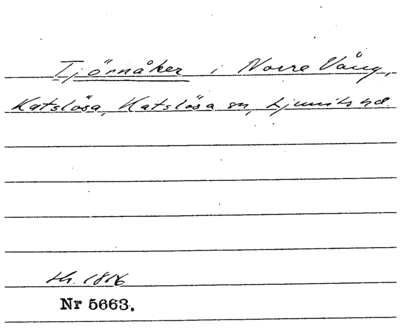 Tjörnåker i Norre Vång,
Katslösa, Katslösa sn, Ljunits hd
sk. 1816
Nr 5663.